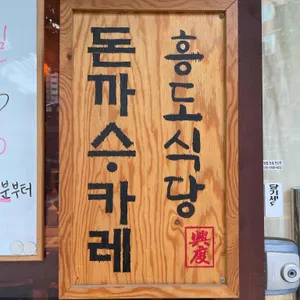 흥도식당
돈까슈카레
興度
분부터
당기세요